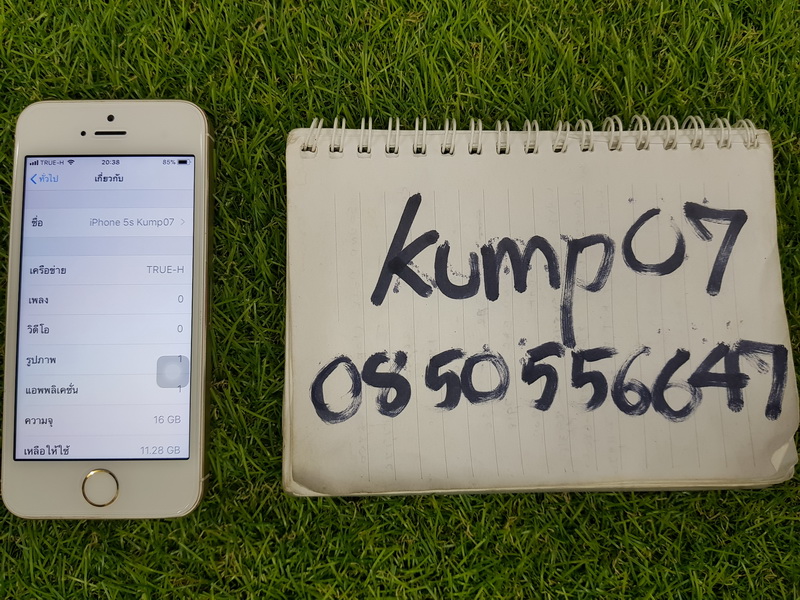 TRUE-H 20:38 85%
ทั่วไป เกี่ยวกับ
ชื่อ iPhone 5s Kump07
เครือข่าย TRUE-H
เพลง 0
วิดีโอ 0
รูปภาพ 1
แอพพลิเคชั่น 1
ความจุ 16 GB
เหลือให้ใช้ 11.28 GB
kump07
0850556647